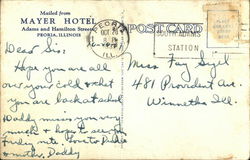 Mailed from
MAYER HOTEL
Adams and Hamilton Streets
PEORIA, ILLINOIS
PEORIA
OCT 26
ILL.
POST CARD
SOUTH ADAMS
STATION
Dear Sis:
Hope you are all
over your cold & that
you are back at school
Daddy misses you very
much & hope to see you
Friday nite. Love to
& mother, Daddy
Miss Fay
481 Provident Ave.
Winnetka Ill.